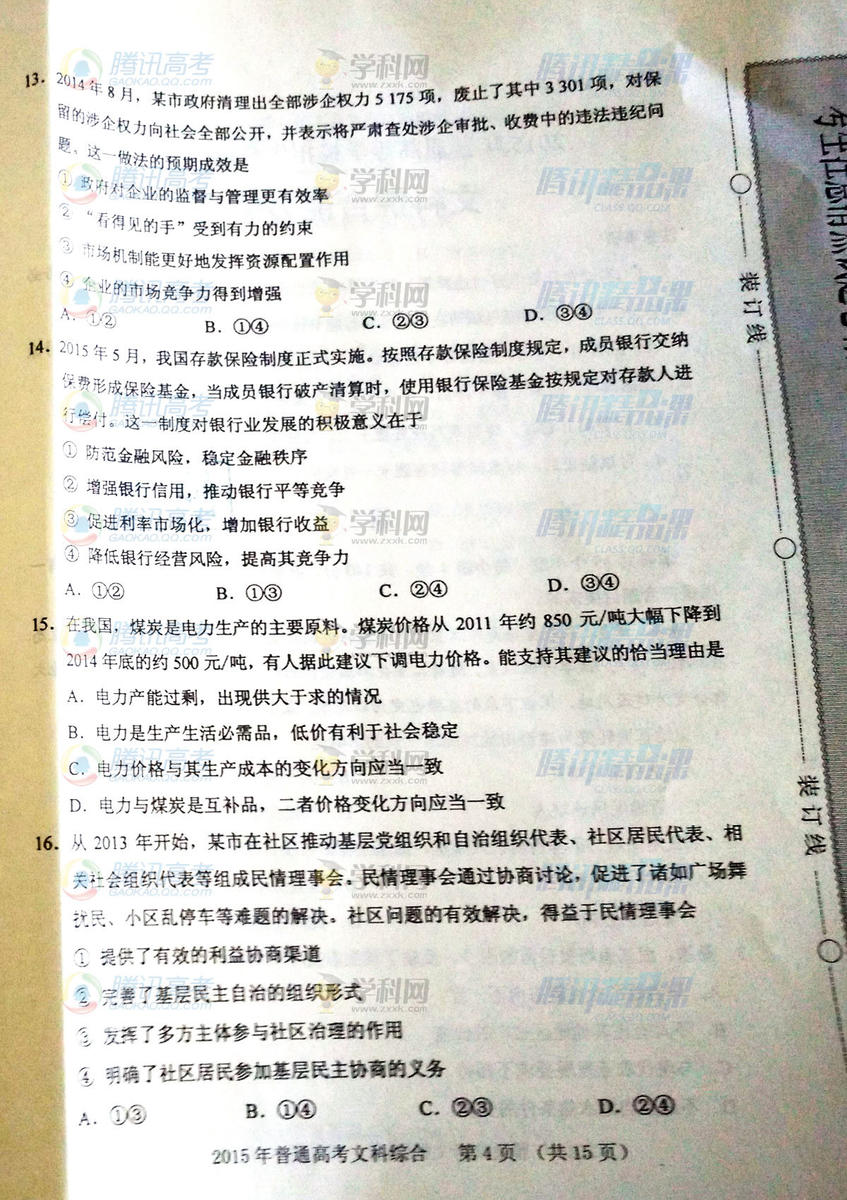 13. 2014年8月，某市政府清理出全部涉企权力5 175项，废止了其中3 301项，对保
留的涉企权力向社会全部公开，并表示将严肃查处涉企审批、收费中的违法违纪问
题。这一做法的预期成效是
① 政府对企业的监督与管理更有效率
② “看得见的手”受到有力的约束
③ 市场机制能更好地发挥资源配置作用
④ 企业的市场竞争力得到增强
A. ①② B. ①④ C. ②③ D. ③④
14. 2015年5月，我国存款保险制度正式实施。按照存款保险制度规定，成员银行交纳
保费形成保险基金，当成员银行破产清算时，使用银行保险基金按规定对存款人进
行偿付。这一制度对银行业发展的积极意义在于
① 防范金融风险，稳定金融秩序
② 增强银行信用，推动银行平等竞争
③ 促进利率市场化，增加银行收益
④ 降低银行经营风险，提高其竞争力
A. ①② B. ①③ C. ②④ D. ③④
15. 在我国，煤炭是电力生产的主要原料。煤炭价格从2011年约850元/吨大幅下降到
2014年底的约500元/吨，有人据此建议下调电力价格。能支持其建议的恰当理由是
A. 电力产能过剩，出现供大于求的情况
B. 电力是生产生活必需品，低价有利于社会稳定
C. 电力价格与其生产成本的变化方向应当一致
D. 电力与煤炭是互补品，二者价格变化方向应当一致
16. 从2013年开始，某市在社区推动基层党组织和自治组织代表、社区居民代表、相
关社会组织代表等组成民情理事会。民情理事会通过协商讨论，促进了诸如广场舞
扰民、小区乱停车等难题的解决。社区问题的有效解决，得益于民情理事会
① 提供了有效的利益协商渠道
② 完善了基层民主自治的组织形式
③ 发挥了多方主体参与社区治理的作用
④ 明确了社区居民参加基层民主协商的义务
A. ①③ B. ①④ C. ②③ D. ②④
2015年普通高考文科综合 第4页（共15页）
装订线
装订线
腾讯高考
GAOKAO.QQ.COM
学科网
www.zxxk.com
腾讯精品课
CLASS.QQ.COM